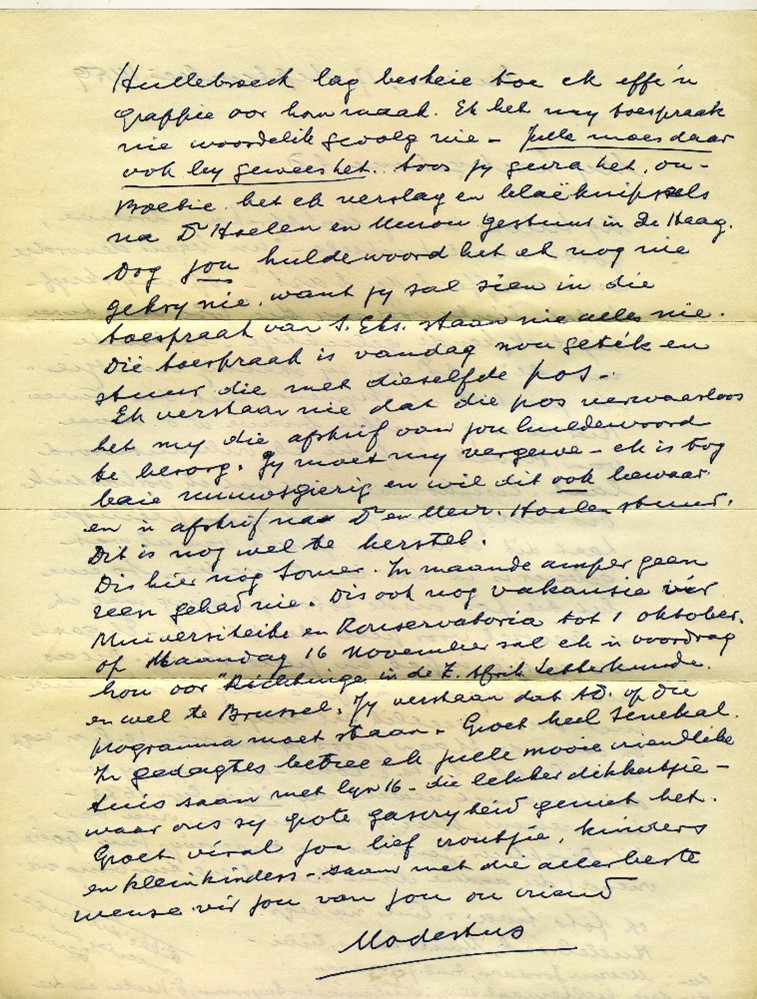 Hullebroeck lag besteie toe ek effe 'n
grappie oor hom maak. Ek het my toespraak
nie woordelik gevolg nie – Julle moes daar
ook by gewees het. Soos jy gevra het, ou-
Boetie, het ek verslag en
na Dr Hoelen en Mevrou gestuur in De Haag.
Dog jou huldewoord het ek nog nie
gekry nie, want jy sal sien in die
toespraak van S. Eks. staan nie alles nie.
Die toespraak is vandag nou getik en
stuur die met dieselfde pos –
Ek verstaan nie dat die pos verwaarloos
het my die afskrif van jou huldewoord
te besorg. Jy moet my vergewe – ek is tog
baie nuuwsgierig en wil dit ook bewaar
en 'n afskrif na Dr en Mevr. Hoelen stuur.
Dit is nog wel te herstel.
Dis hier nog Somer. In maande amper geen
reen gehad nie. Dis ook nog vakansie vir
Universiteite en Konservatoria tot 1 oktober.
Op Maandag 16 November sal ek 'n voordrag
hou oor "Richtinge in de Z. Afrik. Letterkunde.
en wel te Brussel. Jy verstaan dat AD. op die
programma moet staan – Groet heel Senekal.
In gedagtes betree ek julle mooie vriendlike
tuis saam met lyn 16 – die lekker dikkertjie –
waar ons sy grote gasvryheid geniet het.
Groet viral jou lief vroutjie, kinders
en kleinkinders – saam met die allerbeste
wense vir jou van jou ou vriend
Modestus